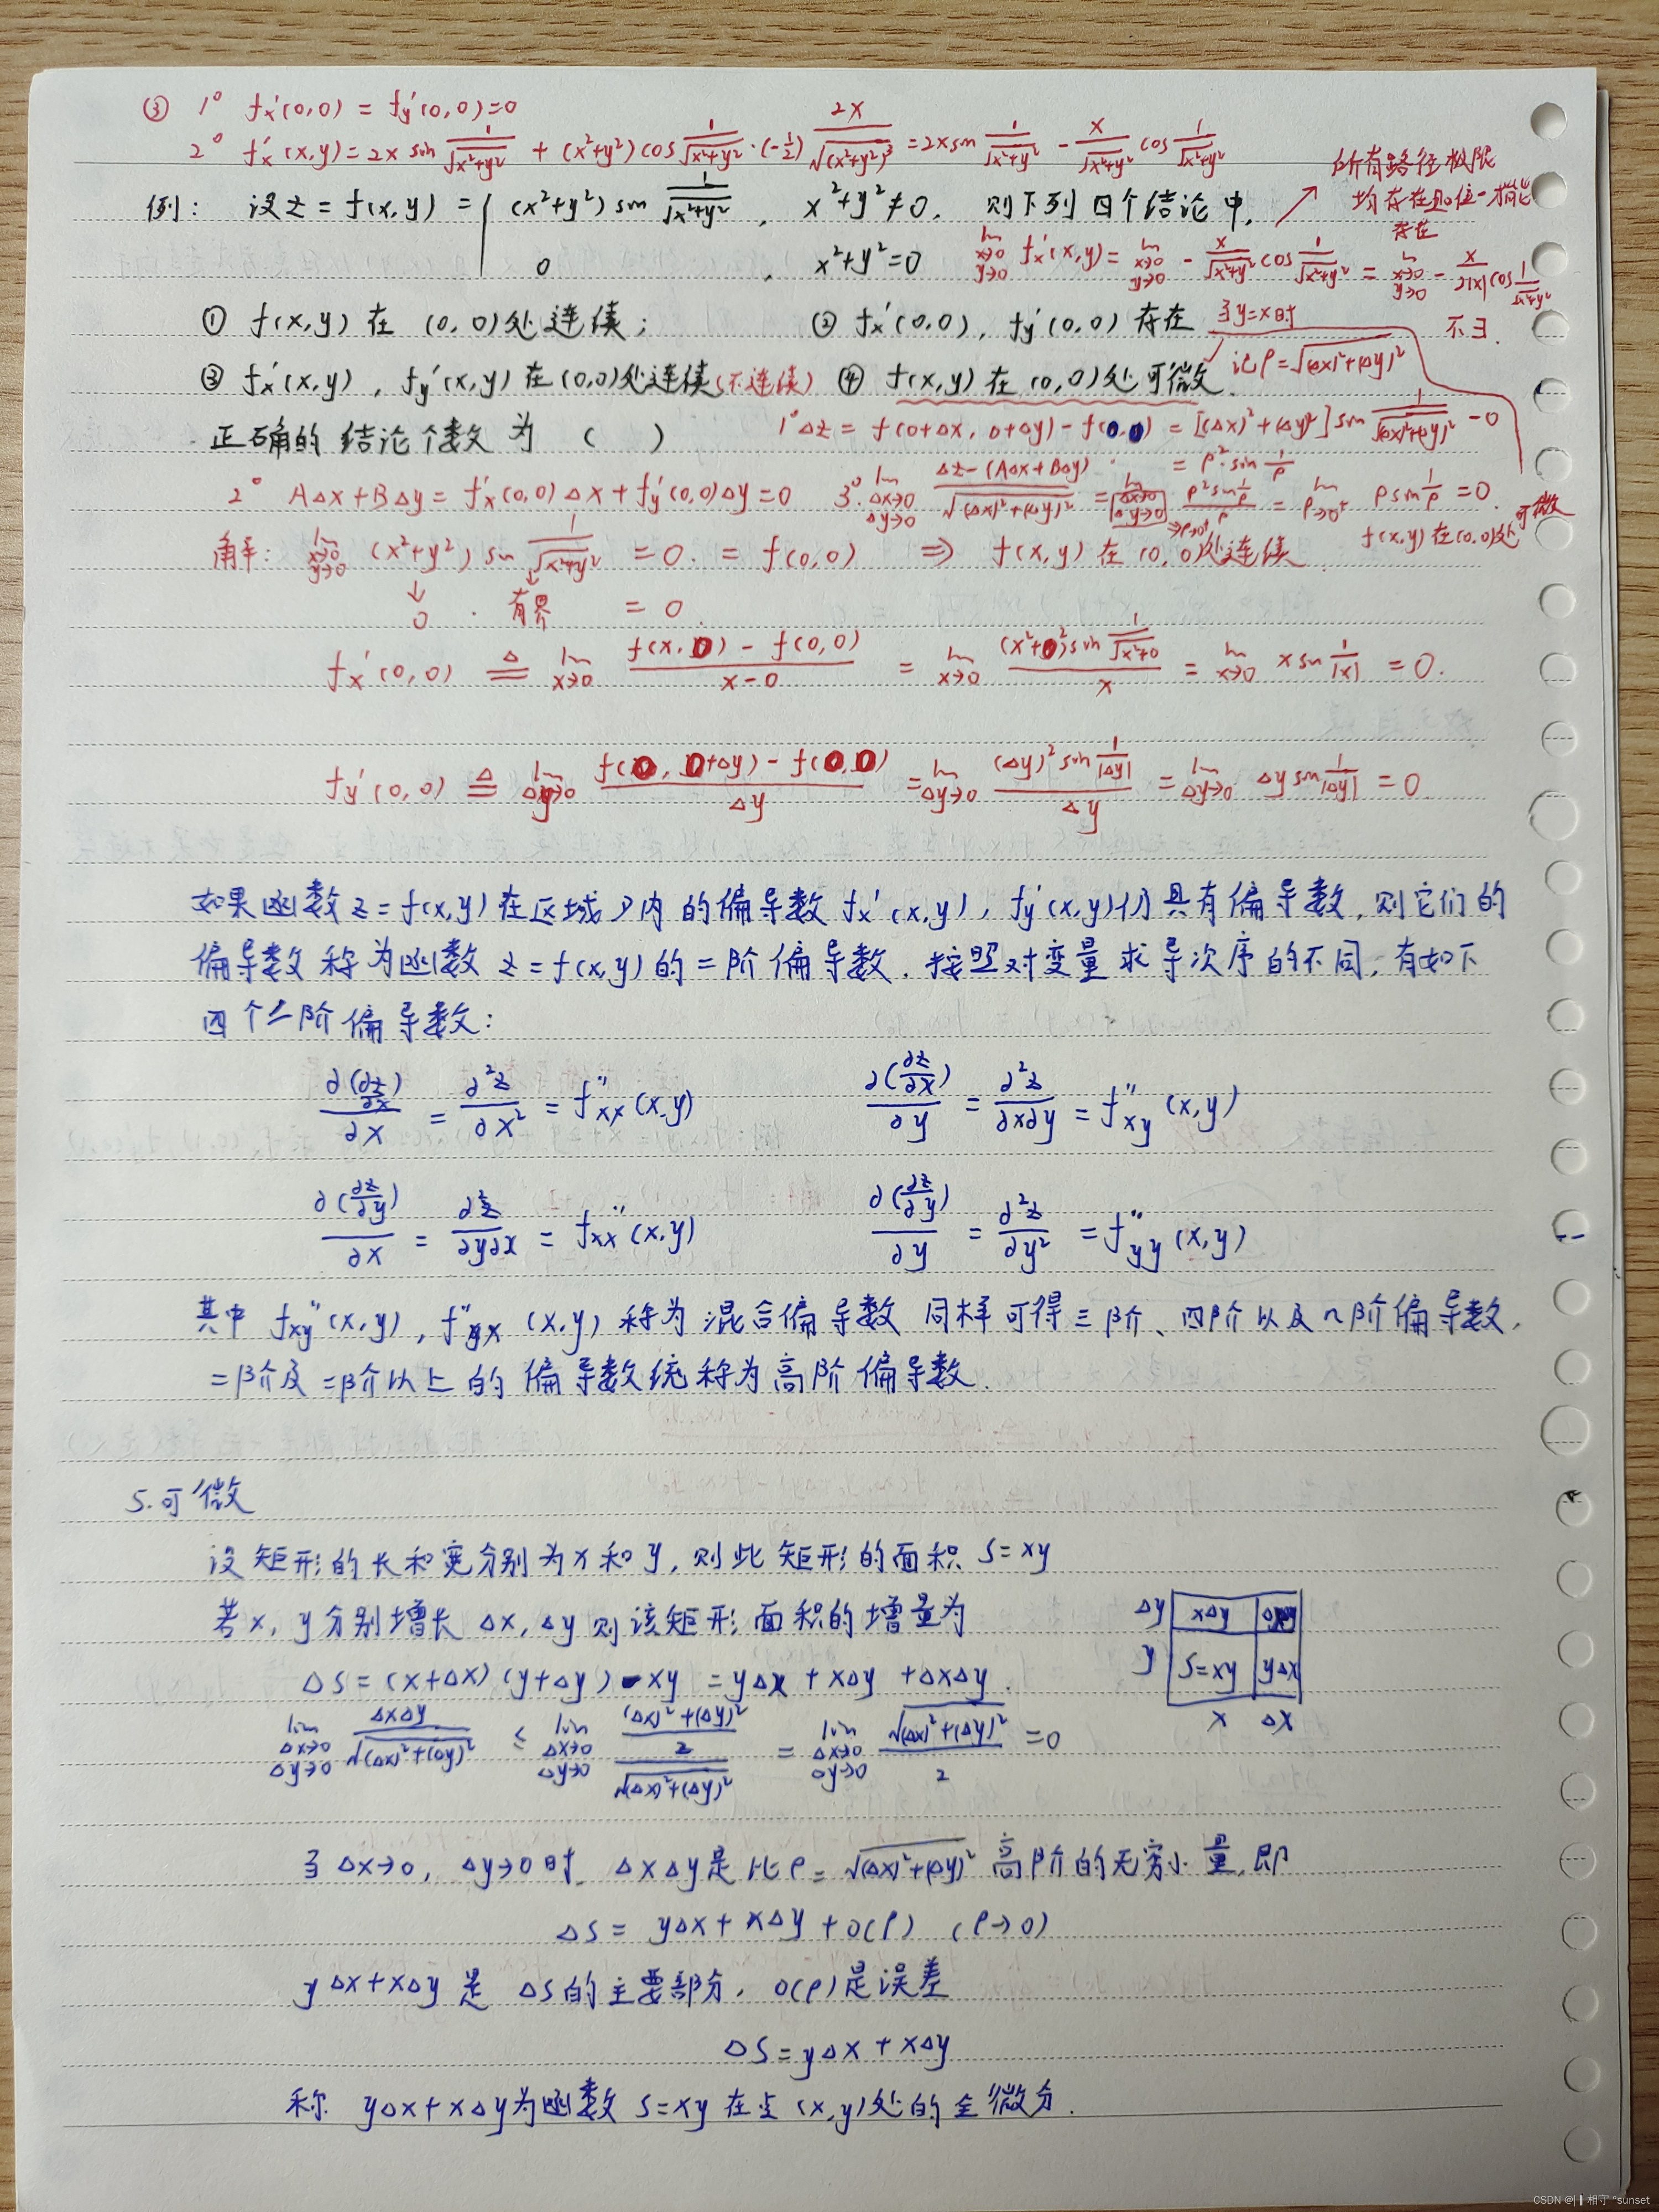 ③ 1° fx'(0,0) = fy'(0,0)=0
2° fx'(x,y)=2x sin 1/√(x²+y²) + (x²+y²)cos 1/√(x²+y²) · (-1/2) 2x/√(x²+y²)³ = 2x sin 1/√(x²+y²) - x/√(x²+y²) cos 1/√(x²+y²)
所有路径极限
均存在且位一才能
存在
例: 设z = f(x,y) = { (x²+y²) sin 1/√(x²+y²), x²+y²≠0. 则下列四个结论中,
0, x²+y²=0
lim x→0 y→0 fx'(x,y) = lim x→0 y→0 - x/√(x²+y²) cos 1/√(x²+y²) = lim x→0 y→0 - x/2|x| cos 1/√(x²+y²)
不∃.
当y=x时
① f(x,y) 在 (0,0)处连续; ② fx'(0,0), fy'(0,0) 存在
③ fx'(x,y), fy'(x,y) 在(0,0)处连续(不连续) ④ f(x,y) 在(0,0)处可微
记ρ=√((Δx)²+(Δy)²)
正确的结论个数为 ( )
1° Δz = f(0+Δx, 0+Δy) - f(0,0) = [(Δx)²+(Δy)²] sin 1/√((Δx)²+(Δy)²) - 0
= ρ² · sin 1/ρ
2° AΔx+BΔy = fx'(0,0)Δx + fy'(0,0)Δy = 0
3° lim Δx→0 Δy→0 Δz-(AΔx+BΔy)/√((Δx)²+(Δy)²) = lim Δx→0 Δy→0 ⇒ρ→0⁺ ρ² sin 1/ρ / ρ = lim ρ→0⁺ ρ sin 1/ρ = 0
f(x,y)在(0,0)处可微
解: lim x→0 y→0 (x²+y²) sin 1/√(x²+y²) = 0. = f(0,0) ⇒ f(x,y) 在(0,0)处连续
↓ ↓
0 · 有界 = 0
fx'(0,0) ≜ lim x→0 f(x,0) - f(0,0)/x-0 = lim x→0 (x²+0²)sin 1/√(x²+0) / x = lim x→0 x sin 1/|x| = 0.
fy'(0,0) ≜ lim Δy→0 f(0, 0+Δy) - f(0,0)/Δy = lim Δy→0 (Δy)² sin 1/|Δy| / Δy = lim Δy→0 Δy sin 1/|Δy| = 0
如果函数 z = f(x,y) 在区域D内的偏导数 fx'(x,y), fy'(x,y)仍具有偏导数, 则它们的
偏导数称为函数 z = f(x,y) 的二阶偏导数. 按照对变量求导次序的不同, 有如下
四个二阶偏导数:
∂(∂z/∂x)/∂x = ∂²z/∂x² = f''xx(x,y) ∂(∂z/∂x)/∂y = ∂²z/∂x∂y = f''xy(x,y)
∂(∂z/∂y)/∂x = ∂²z/∂y∂x = fxx''(x,y) ∂(∂z/∂y)/∂y = ∂²z/∂y² = f''yy(x,y)
其中 fxy''(x,y), f''yx(x,y) 称为混合偏导数 同样可得三阶、四阶以及n阶偏导数,
二阶及二阶以上的偏导数统称为高阶偏导数.
5.可微
设矩形的长和宽分别为x和y, 则此矩形的面积 S=xy
若x, y分别增长 Δx, Δy 则该矩形面积的增量为
ΔS = (x+Δx)(y+Δy) - xy = yΔx + xΔy + ΔxΔy.
Δy xΔy ΔxΔy
y S=xy yΔx
x Δx
lim Δx→0 Δy→0 ΔxΔy/√((Δx)²+(Δy)²) ≤ lim Δx→0 Δy→0 ((Δx)²+(Δy)²)/2 / √((Δx)²+(Δy)²) = lim Δx→0 Δy→0 √((Δx)²+(Δy)²)/2 = 0
当 Δx→0, Δy→0时 ΔxΔy是比ρ=√((Δx)²+(Δy)²) 高阶的无穷小量, 即
ΔS = yΔx + xΔy + o(ρ) (ρ→0)
yΔx+xΔy 是 ΔS的主要部分, o(ρ)是误差
ΔS = yΔx + xΔy
称 yΔx+xΔy为函数 S=xy 在点(x,y)处的全微分.
CSDN @| ▌相守 °sunset